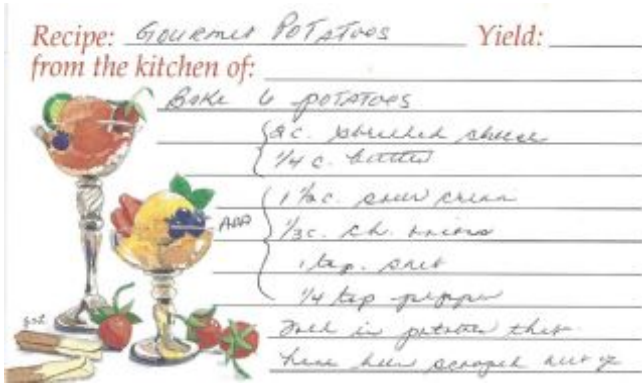 Recipe: Gourmet Potatoes Yield:
from the kitchen of:
Bake 6 potatoes
2 c. shredded cheese
1/4 c. butter
1 1/2 c. sour cream
ADD
1/3 c. ch. onions
1 tsp. salt
1/4 tsp pepper
Fold in potatoes that
have been scraped out of